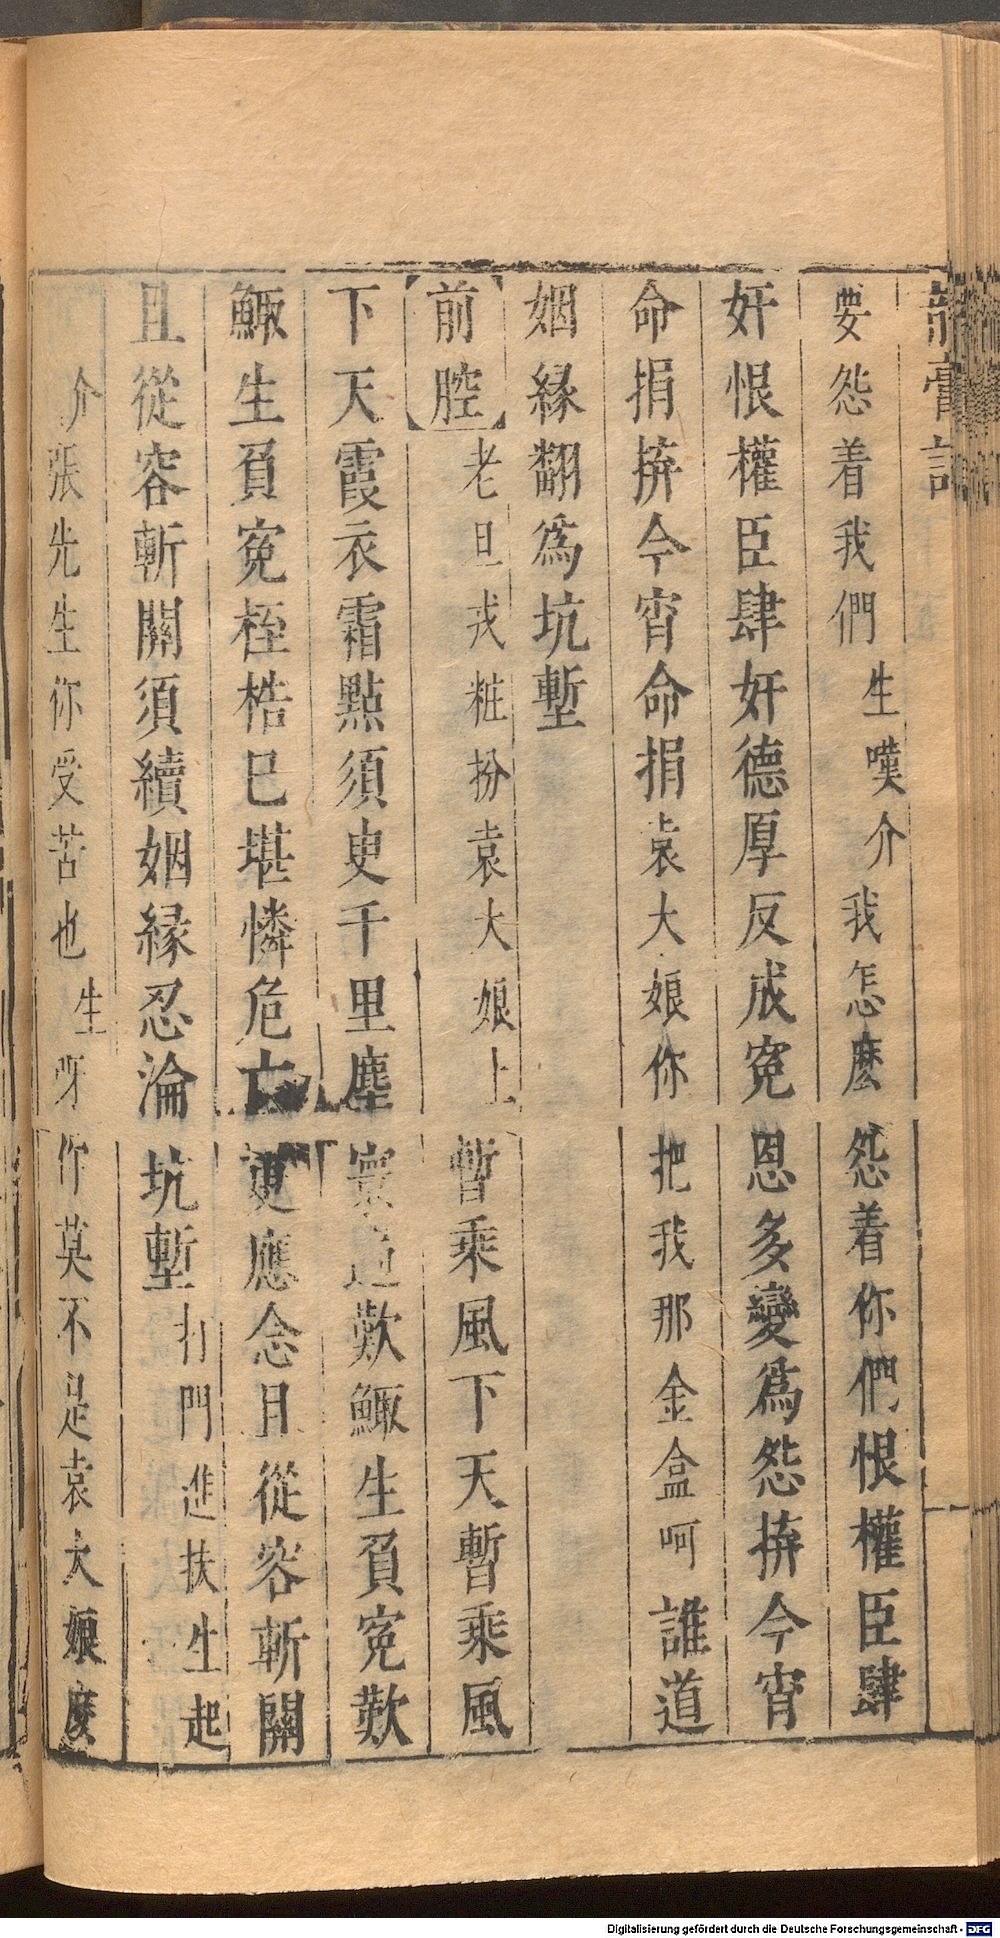 膏記
要怨着我們生嘆介我怎麽怨着你們恨權臣肆
奸恨權臣肆奸德厚反成寃恩多變爲怨拚今宵
命捐拚今宵命捐袁大娘你把我那金盒呵誰道
姻緣翻爲坑塹
前腔老旦戎粧扮袁大娘上暫乘風下天暫乘風
下天霞衣霜點須臾千里塵寰過歎鯫生負寃歎
鯫生負寃桎梏已堪憐危亡更應念且從容斬關
且從容斬關須續姻緣忍淪坑塹打門進扶生起
介張先生你受苦也生呀你莫不是袁大娘麽
Digitalisierung gefördert durch die Deutsche Forschungsgemeinschaft - DFG